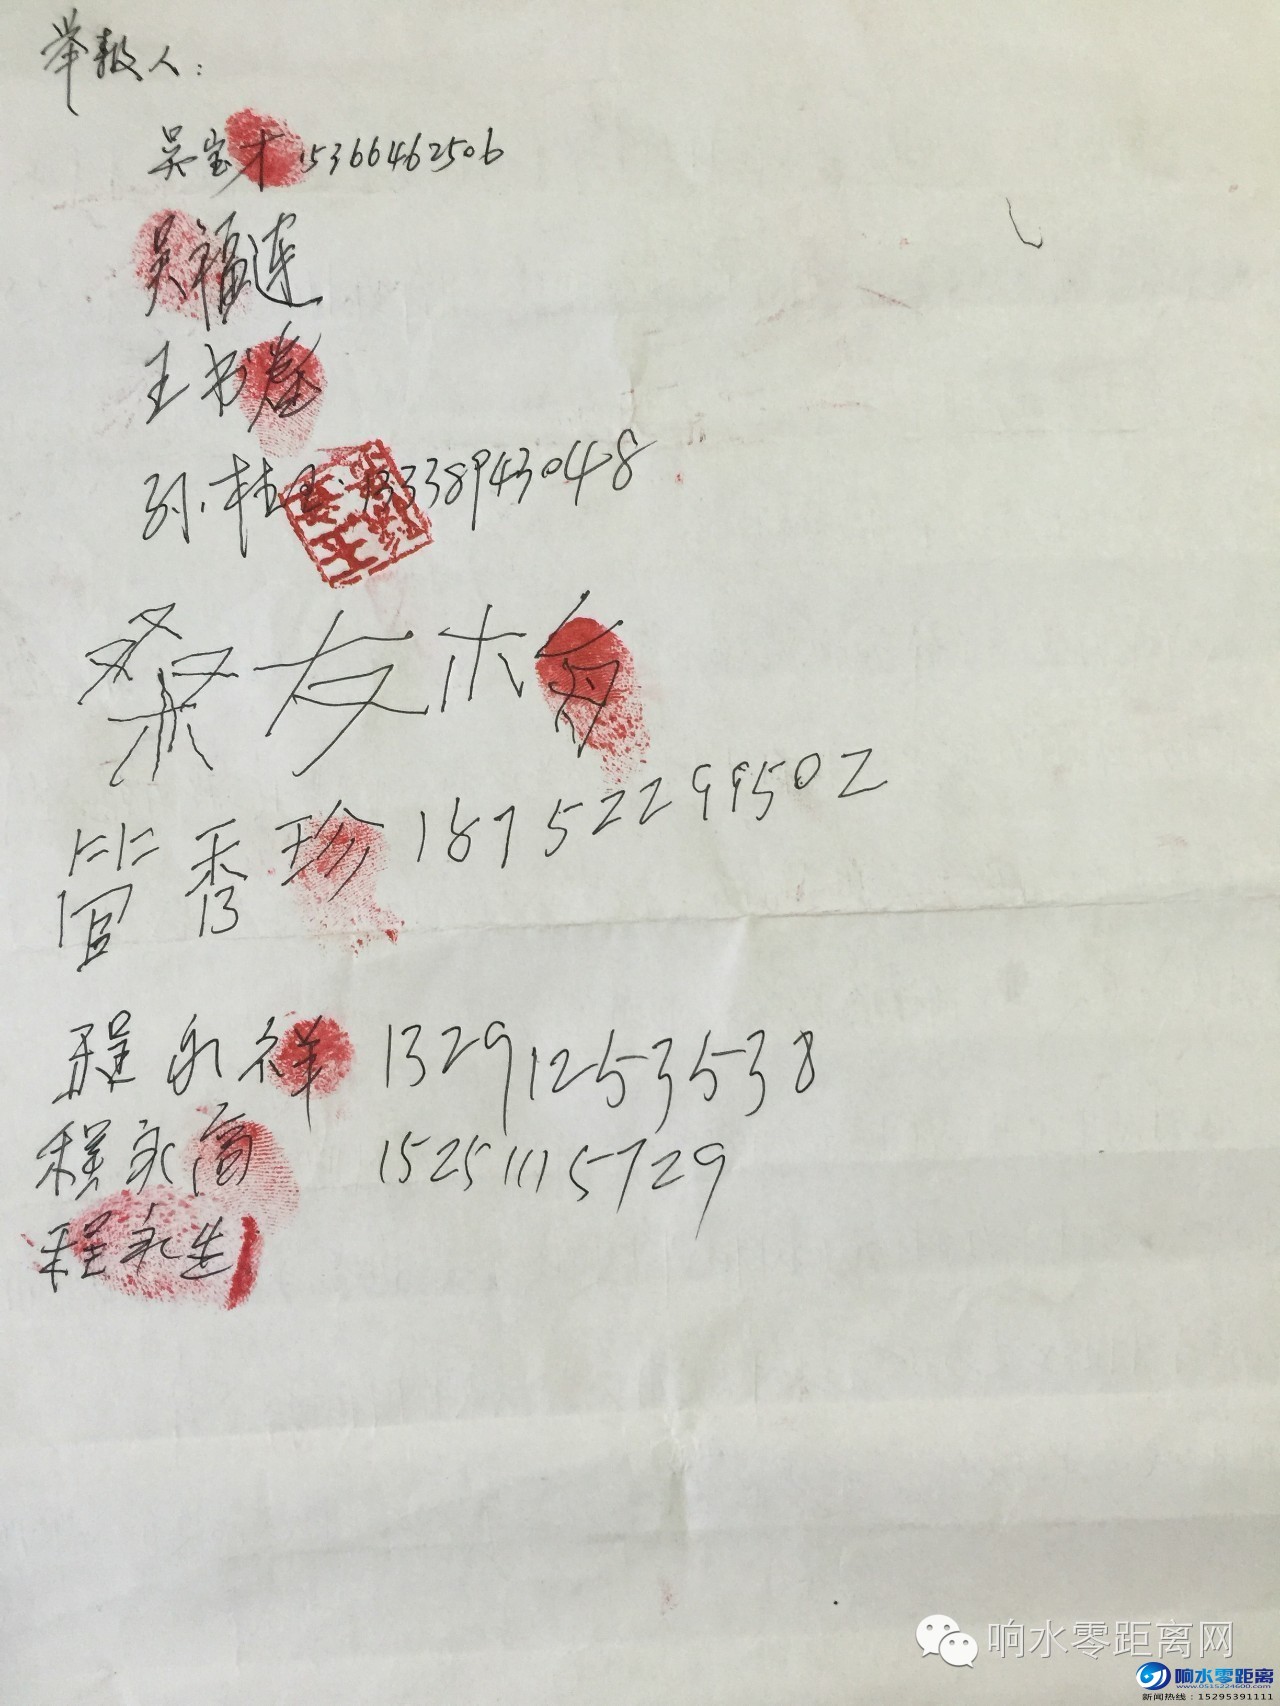 举报人：
吴宝才 15366462506
吴福连
王书
孙桂玉 13338943048
桑友梅
管秀珍 18752299502
程永祥 13291253538
程永高 15251115729
程永生
响水零距离网
响水零距离
www.0515224600.com
新闻热线：15295391113